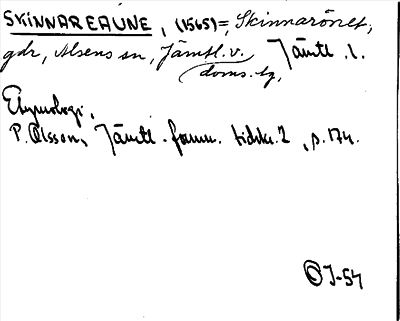 SKINNAREAUNE, (1565)=, Skinnarönet,
gdr, Alsens sn, Jämtl. v. Jämtl. l.
doms. tg,
Etymologi,
P. Olsson, Jämtl. fornm. tidskr. 2, s. 174.
©J-54